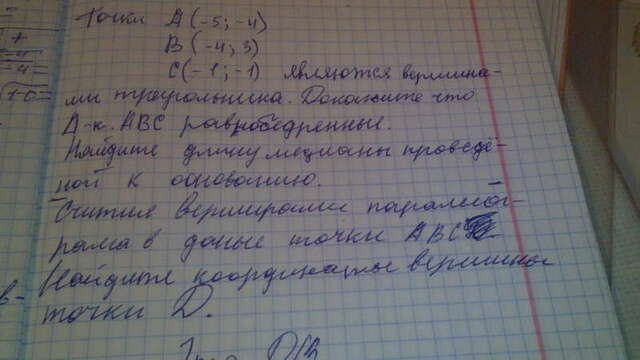 Точки А(-5; -4)
В(-4; 3)
С(-1; -1) являются вершина-
ми треугольника. Докажите что
Д-к. АВС равнобедренные.
Найдите длину медианы проведё-
ной к основанию.
Считая вершинами параллелог-
рама в даные точки АВС
Найдите координаты вершины
точки D.